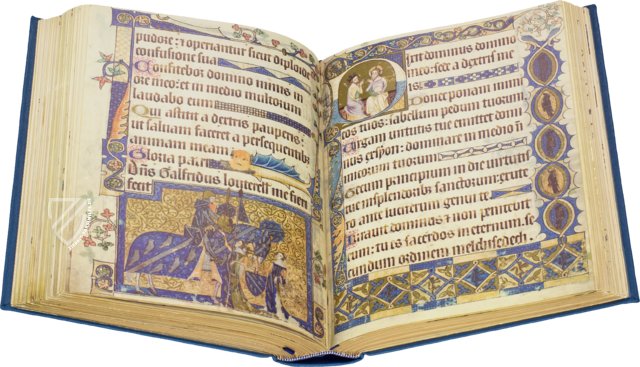 pudore: et operiantur sicut diploide
confusione sua
Confitebor domino nimis in
ore meo: et in medio multorum
laudabo eum
Qui astitit a dextris pauperis:
ut salvam faceret a persequentibus
animam meam
Gloria patri
Dns Galfridus louterell me fieri
fecit
Dixit dominus domino
meo: sede a dextris me
is
Donec ponam inimi
cos tuos: scabellum pedum tuorum
Virgam virtutis tue emittet domi
nus ex syon: dominare in medio in
imicorum tuorum
Tecum principium in die virtutis
tue in splendoribus sanctorum: ex ute
ro ante luciferum genui te
Iuravit dominus et non penitebit
eum: tu es sacerdos in eternum se
cundum ordinem melchisedech